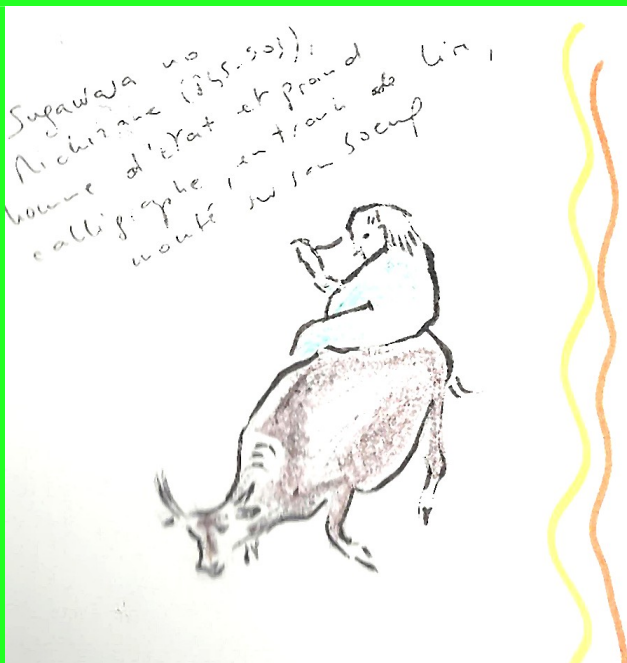 Sugawara no
Michizane (845-903),
homme d'état et grand
calligraphe, en train de lire,
monté sur son boeuf